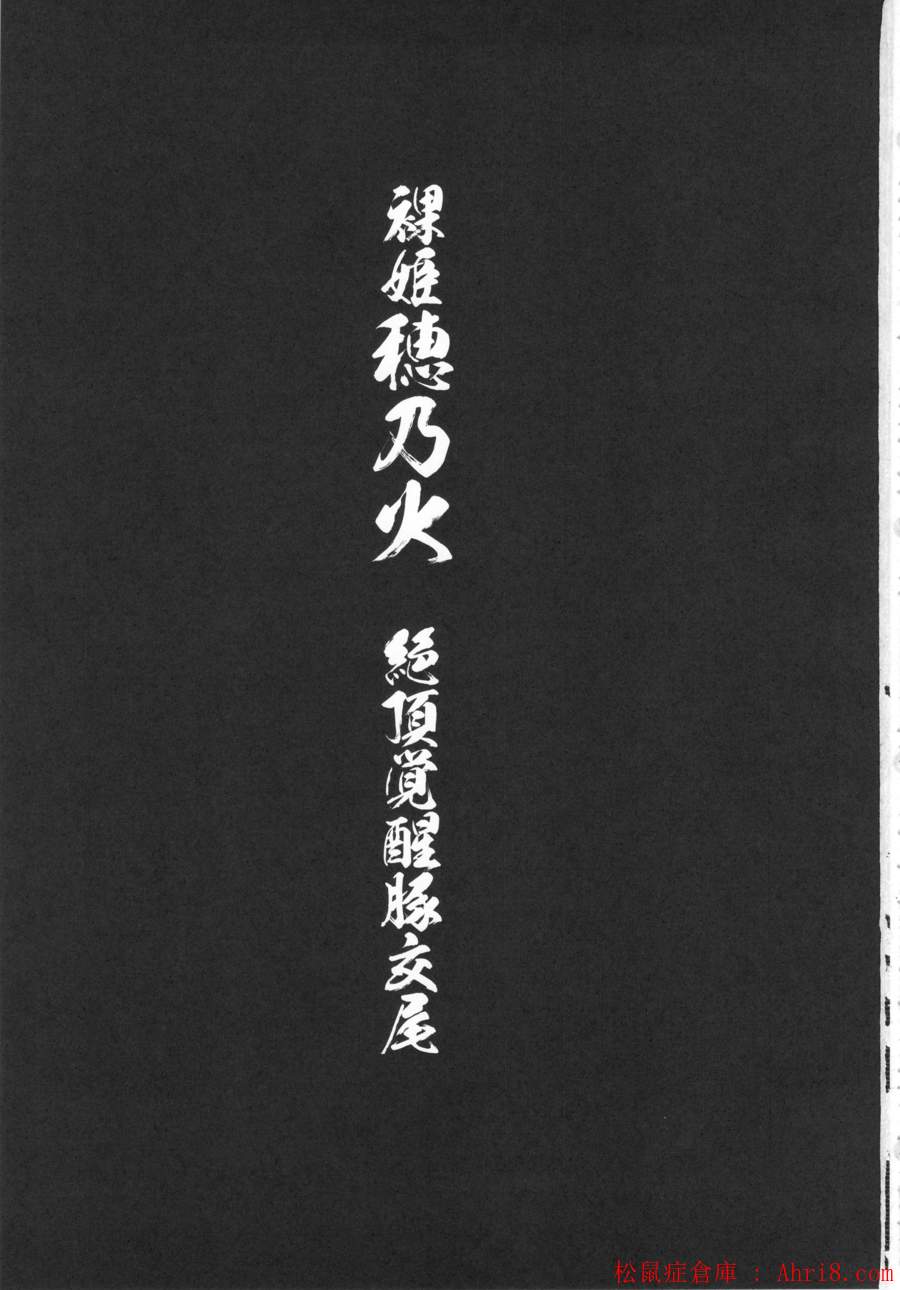 裸姫穂乃火 絶頂覚醒豚交尾
松鼠症倉庫 : Ahri8.com